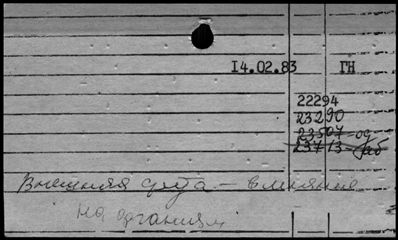 14.02.83 ГН
22294
23290
23507-од
23713-раб
Внешняя среда - влияние
на организм